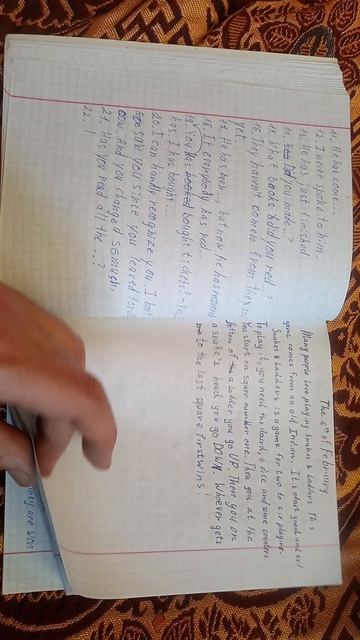 11. He has gone...
12. I never spoke to him.
13. He has just finished.
14. Did you make...?
15. What books did you red?
16. They haven't comen from the
yet.
17. He has been , but now he has
18. If everybody has red...
19. You has booked bought tickets? - Yes,
has. I has bought...
20. I can hardly recognize you. I ha
see saw you since you leaved for
. And you changed so much.
21. Has you read all the ...?
22. I
The 6th of February
Many people love playing Snakes & Ladders. This
game comes from an old Indian. It is about good and evil
Snakes & Ladders is a game for two to six players.
To play it you need the board, a dice and some counters.
start in squer number one. Then you at the
bottom of a ladder you go UP. Then you on
a snake's head you go DOWN. Whoever gets
to the last square first wins!
they are